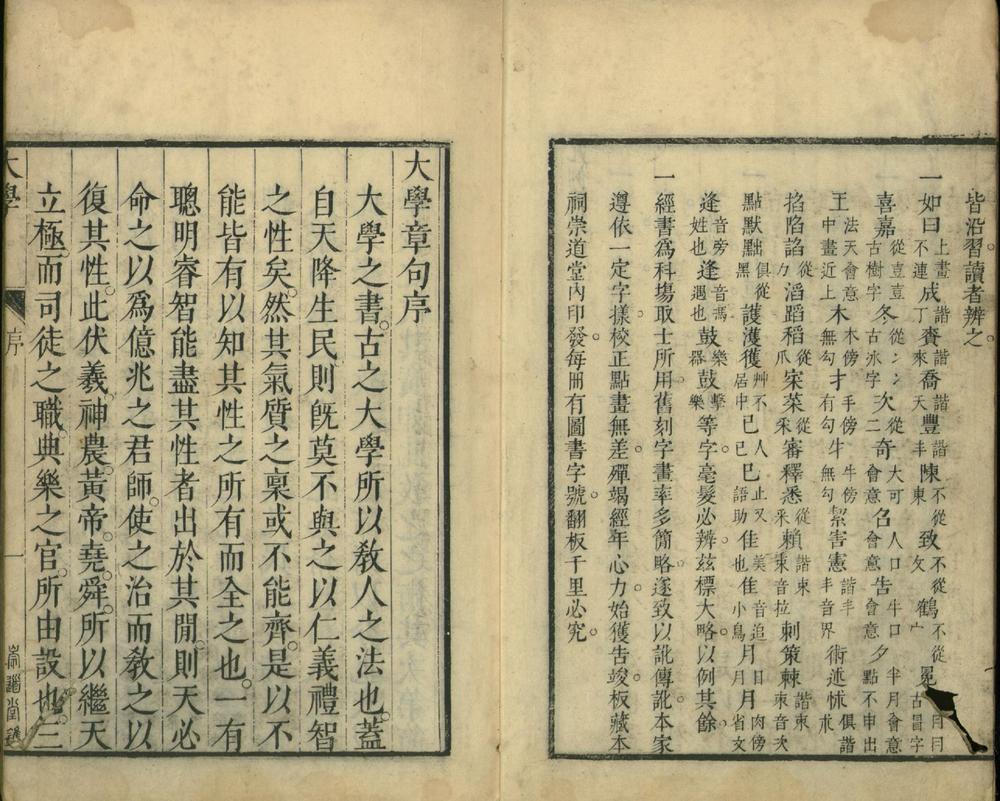 皆沿習讀者辨之
一如曰上畫不連成諧丁賚諧來喬諧天豐諧丰陳不從東致不從攵鶴不從冖冕古冒字
喜嘉從壴壴古樹字冬從冫冫古氷字次從二奇大可會意名人口會意告牛口會意夕半月會意點不申出
王法天會意中畫近上木木傍無勾才手傍有勾牛牛傍無勾絜害憲諧丯丯音界術述怵俱諧朮
掐陷諂從滔蹈稻從爪宋菜從采審釋悉從釆賴諧束束音拉刺策棘諧朿朿音次
點默黜俱從黑護濩獲艸不居中已人已巳止又語助佳美也隹音追小鳥月日月月肉傍省文
逄音旁姓也逢音馮遇也鼓樂器鼔擊樂等字毫髮必辨玆標大略以例其餘
一經書爲科塲取士所用舊刻字畫率多簡略遂致以訛傳訛本家
遵依一定字㨾校正點畫無差殫竭經年心力始獲告竣板藏本
祠崇道堂內印發每冊有圖書字號翻板千里必究
大學章句序
大學之書古之大學所以敎人之法也蓋
自天降生民則旣莫不與之以仁義禮智
之性矣然其氣質之稟或不能齊是以不
能皆有以知其性之所有而全之也一有
聰明睿智能盡其性者出於其閒則天必
命之以爲億兆之君師使之治而敎之以
復其性此伏羲神農黃帝堯舜所以繼天
立極而司徒之職典樂之官所由設也三
大學
序
一